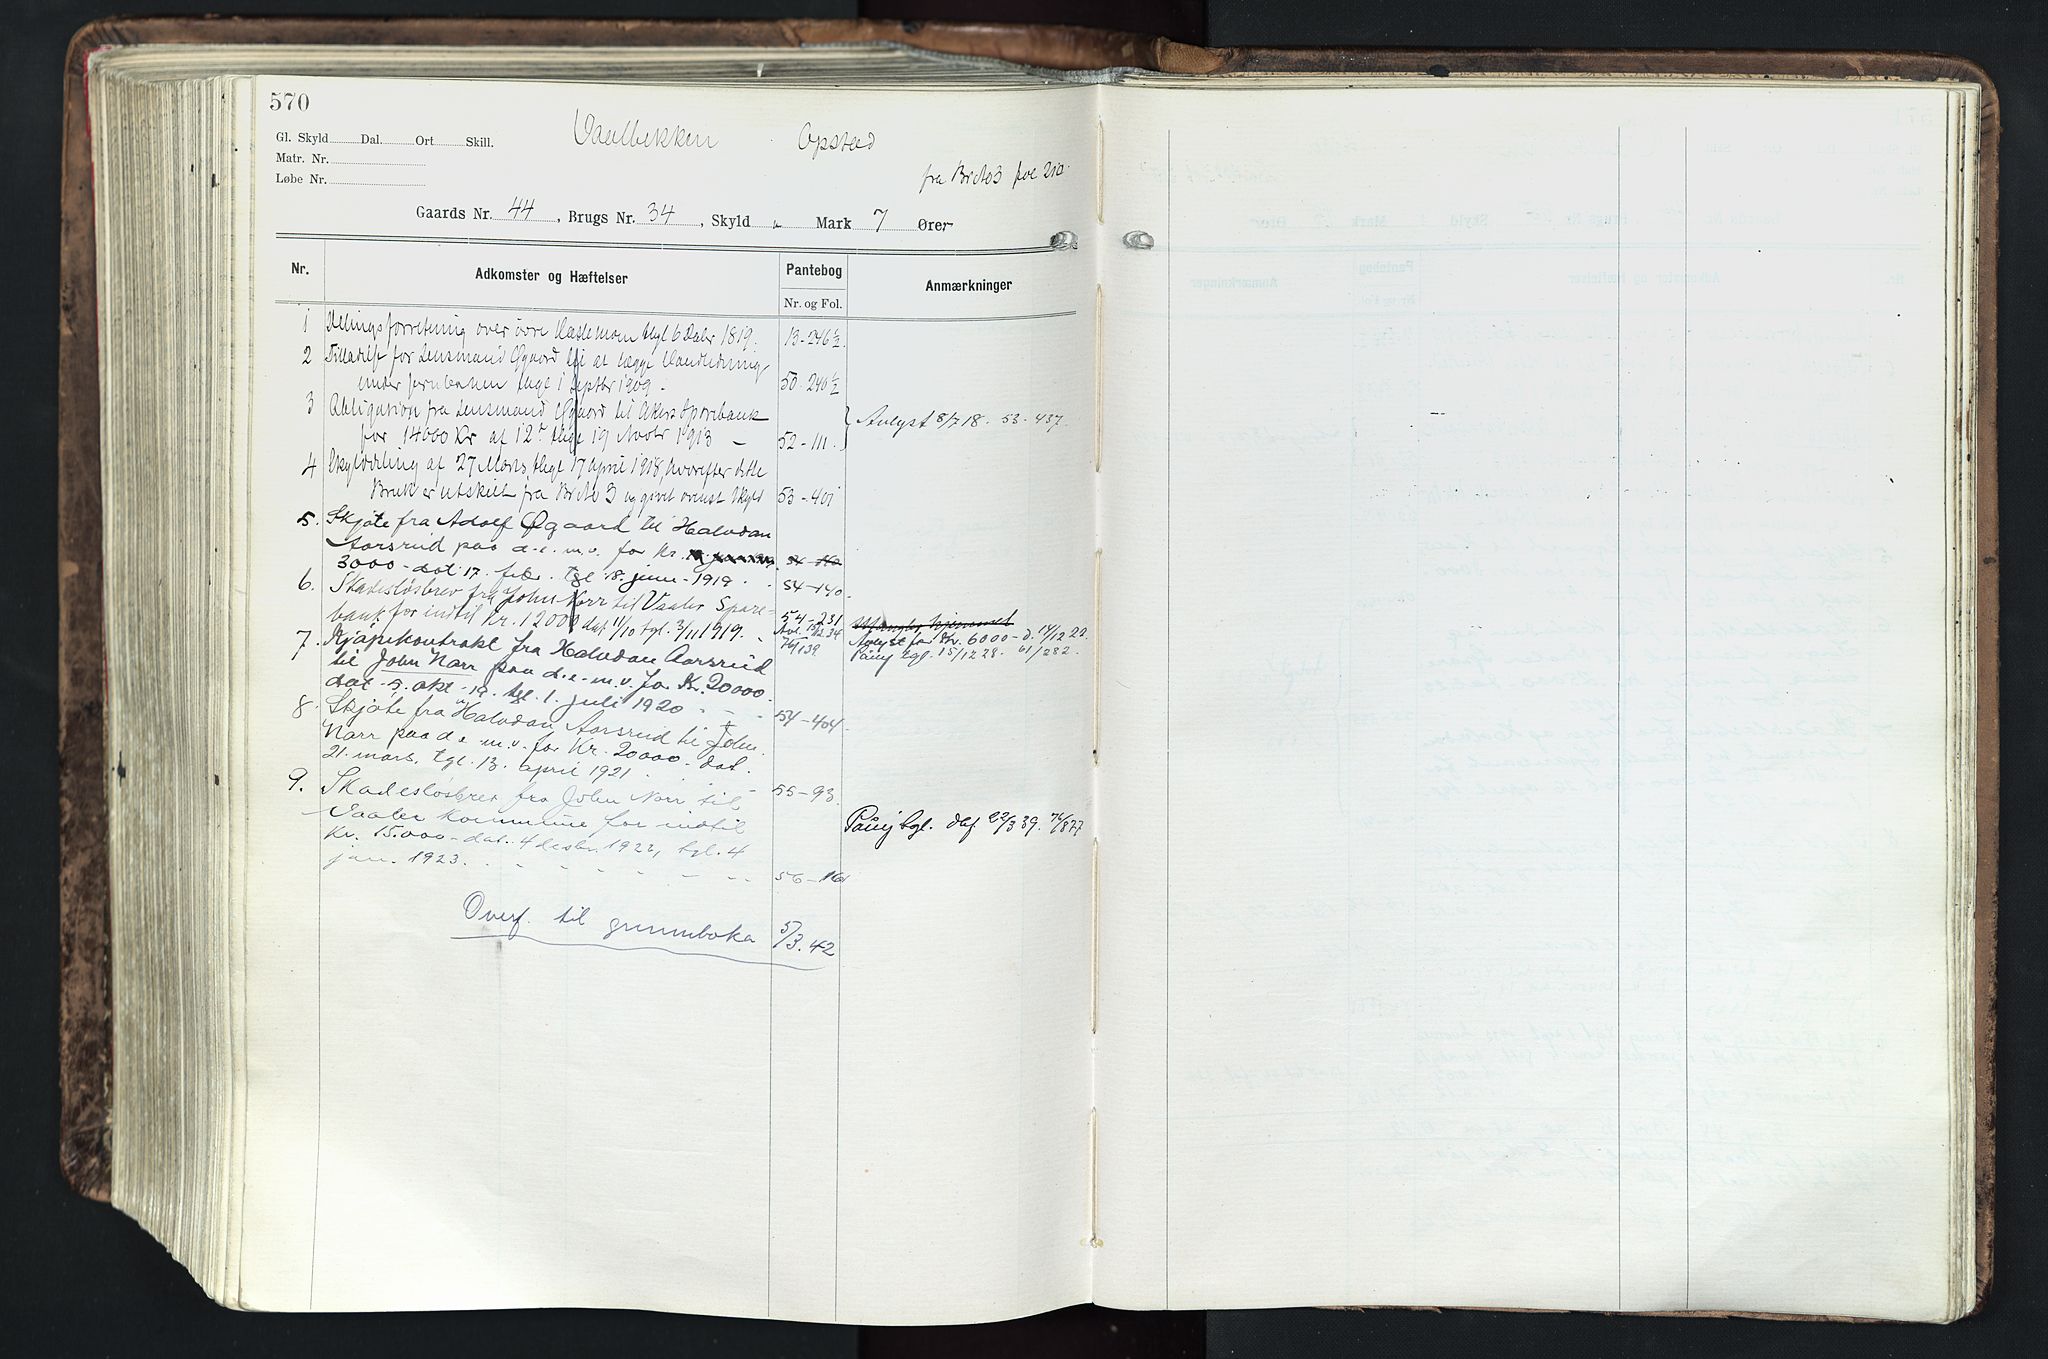 570
Gl. Skyld Dal. Ort Skill. Vaalbekken Opstad
Matr. Nr.
Løbe Nr. fra Br No 3 fol 210.
Gaards Nr. 44, Brugs Nr. 34, Skyld " Mark 7 Ører
Nr. Adkomster og Hæftelser Pantebog Anmærkninger
Nr. og Fol.
1 Delingsforretning over øvre tlgt 6 Dcbr 1819. 13-246½.
2 Tilladelse for Lensmand Øgaard til at lægge Vandledning
under jernbanen tlgt 1 Septbr 1909 - 50-240½
3 Obligation fra Lensmand Øgaard til Akers Sparebank
for 14000 Kr af 12te tlgt 19 Novbr 1913 - 52-111. Avlyst 8/7 18. 53-437.
4 Skylddeling af 27 Marts, tlgt 17 April 1918, hvorefter dette
Bruk er utskilt fra Br No 3 og givet ovenst Skyld 53-401
5. Skjøte fra Adolf Øgaard til Halvdan
Aarsrud paa d.e.m.v. for Kr.
3000- dat 17. febr. tgl 18. juni - 1919. 54-140.
6. Skadesløsbrev fra John Norr til Vaaler Spare-
bank for indtil Kr. 12000 dat 11/10 tgl. 3/11 1919. 54-231 Mangler hjemmel
Avl. 15/12 34 76/139 Avlyst for Kr. 6000- d. 14/12 22.
7. Kjøpekontrakt fra Halvdan Aarsrud Påtegn. tgl. 15/12 28. 61/282.
til John Norr paa d.e.m.v. for Kr. 20000.
dat - 5. okt - 19. tgl. 1. juli 1920 54-404
8. Skjøte fra Halvdan Aarsrud til John
Norr paa d.e.m.v. for Kr. 20000- dat.
21. mars, tgl. 13. april 1921. 55-93.
9. Skadesløsbrev fra John Norr til
Vaaler kommune for indtil tgl. 22/3 39. 76/877
Kr. 15.000- dat. 4 desbr. 1922, tgl. 4
jan. 1923. 56-161
Overf. til grunnboka 5/3. 42